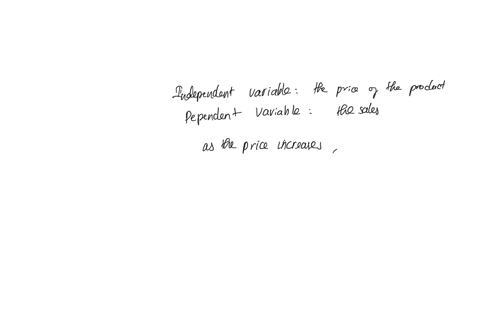 Independent variable: the price of the product
Dependent variable: the sales
as the price increases,